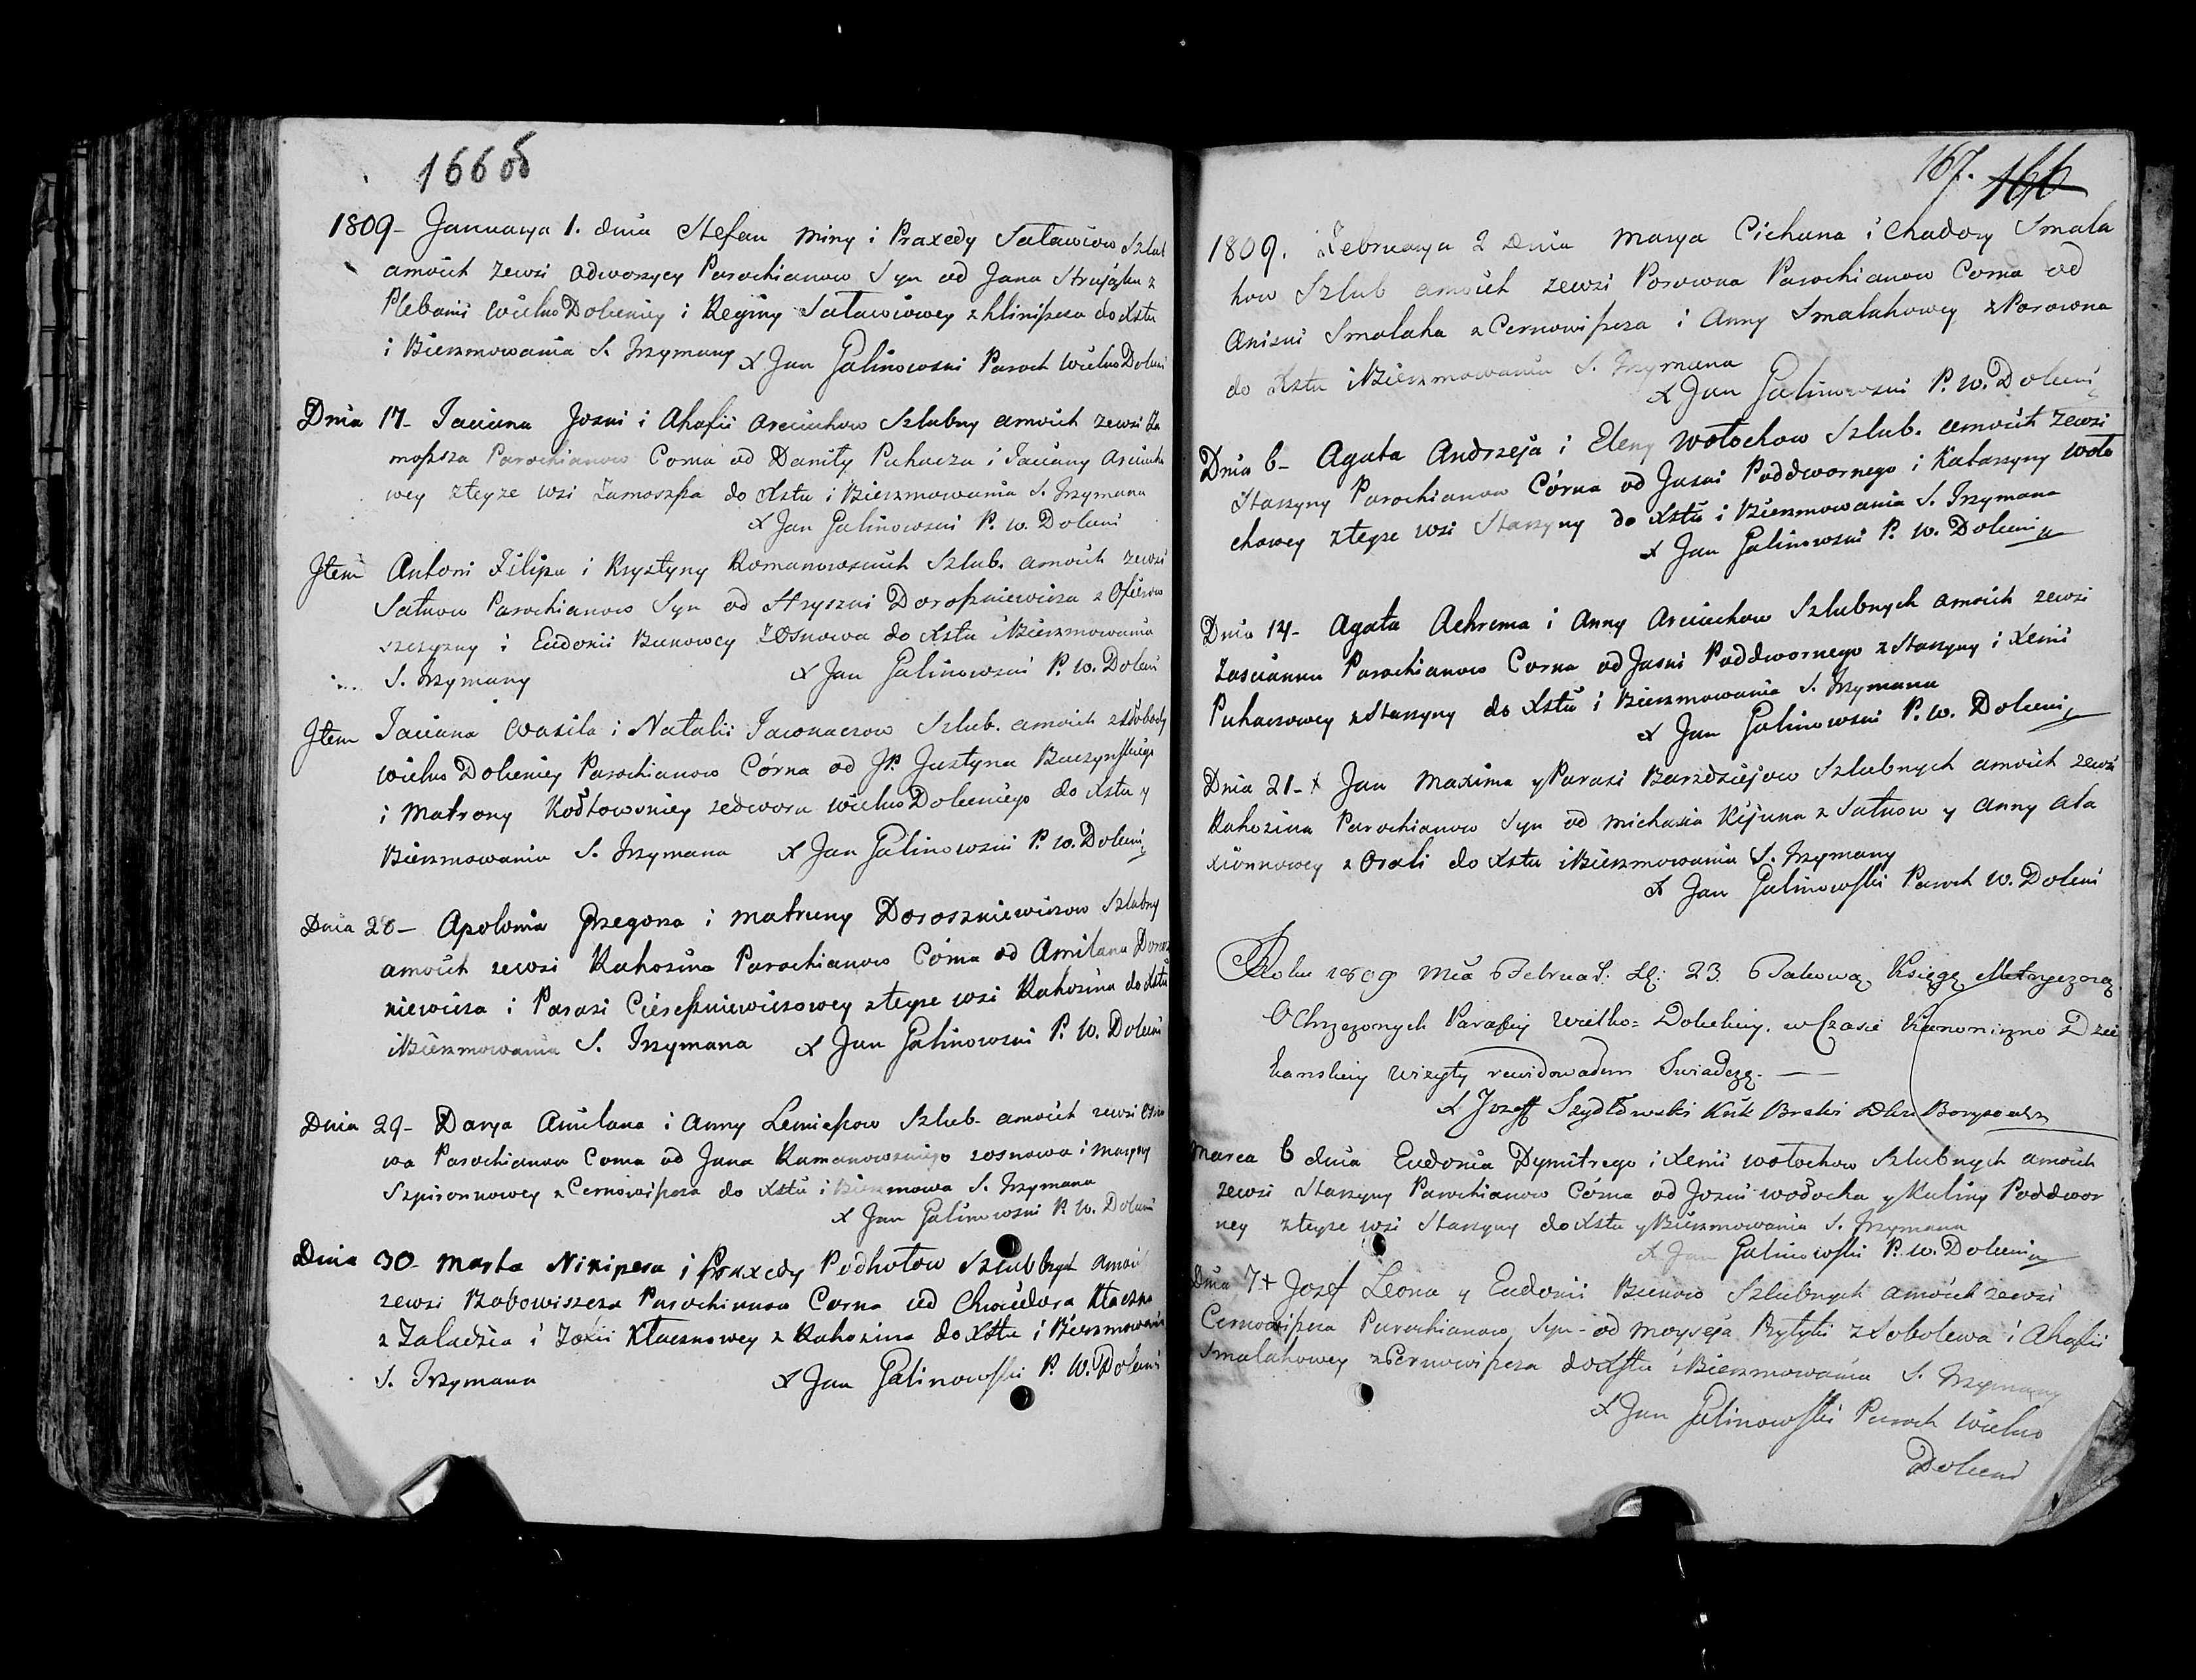 166 об
1809- Januarya 1. dnia Stefan Miny i Praxedy Saławiow Szlub
amoich zewsi odworzycy Parochianow Syn od Jana
Plebanii Wielko Doleckiey i Reginy Saławiowey z do Xstu
i Bierzmowania S. Trzymany X Jan Galinowski Paroch Wielko Dolecki
Dnia 17- Taciana Joski i Ahafii Arciuchow Szlubny amoich zewsi Za
moszsza Parochianow Corka od Daniły Puhacza i Taciany Arciucho
wey zteyze wsi Zamoszsza do Xstu i Bierzmowania S. Trzymana
X Jan Galinowski P. W. Dolecki
Jtem Antoni Filipa i Krystyny Romanowskich Szlub. amoich zewsi
Satkow Parochianow Syn od Hryszki Doroszkiewicza z
i Eudokii Bunowey zosnowa do Xstu i Bierzmowania
S. Trzymany X Jan Galinowski P. W. Dolecki
Jtem Taciana Wasila i Natalii Szlub. amoich z słobody
Wielko Doleckiey Parochianow Córka od JP. Justyna Buczynskiego
i Matrony Kozłowskiey zedworu Wielko Doleckiego do Xstu y
Bierzmowania S. Trzymana X Jan Galinowski P. W. Dolecki
Dnia 28- Apolonia Grzegorza i Matruny Doroszkiewiczow Szlubny
amoich zewsi Rahozina Parochianow Córka od Amilana Dorosz
kiewicza i Parasi zteyze wsi Rahozina do Xstu
i Bierzmowania S. Trzymana X Jan Galinowski P. W. Dolecki
Dnia 29- Darya Amilana i Anny Szlub- amoich zewsi Osno
wa Parochianow Corka od Jana Ramanowskiego zosnowa i Maryny
Szpironkowey z do Xstu i Bierzmowa S. Trzymana
X Jan Galinowski P. W. Dolecki
Dnia 30- Marta Nikipera i Praxedy Podhołow Szlubbnych amoich
zewsi Babowiszcza Parochianow Corka od Chwiedora Kłaczka
z Zaludzia i Zosii Kłaczkowey z Rahozina do Xstu i Bierzmowania
S. Trzymana X Jan Galinowski P. W. Dolecki
167. 166
1809. Februarya 2 Dnia Marya Cichana i Chadory Smala
how Szlub amoich zewsi Porowna Parochianow Corka od
Aniski Smalaha z i Anny Smalahowey z Porowna
do Xstu i Bierzmowania S. Trzymana
X Jan Galinowski P. W. Dolecki
Dnia 6- Agata Andrzeja i Eleny Wołochow Szlub. amoich zewsi
Starzyny Parochianow Córka od Jaski Poddwornego i Katarzyny Woło
chowey zteyze wsi Starzyny do Xstu i Bierzmowania S. Trzymana
X Jan Galinowski P. W. Dolecki
Dnia 14- Agata Achrema i Anny Arciuchow Szlubnych amoich zewsi
Zascianku Parochianow Corka od Jaski Poddwornego z Starzyny i Xenii
Puhaczowey z Starzyny do Xstu i Bierzmowania S. Trzymana
X Jan Galinowski P. W. Dolecki
Dnia 21- X Jan Maxima y Parasi Barzdziejow Szlubnych amoich zewsi
Rahozina Parochianow Syn od Michasia Kijuna z Satkow y Anny Ala
xionkowey z Osoli do Xstu i Bierzmowania S. Trzymany
X Jan Galinowski Paroch W. Dolecki
Roku 1809 Mca Februar: D: 23. Takową Księgę Metryczną
Ochrzczonych Parafii Wielko= Doleckiey. w Czasie Kanoniczno Dzie
kanskiey Wizyty rewidowałem Swiadczę. —
X Jozeff Szydłowski
Marca 6 dnia Eudokia Dymitrego i Xenii Wołochow Szlubnych amoich
zewsi Starzyny Parochianow Córka od Joski Wołocha y Kuliny Poddwor
ney zteyze wsi Starzyny do Xstu y Bierzmowania S. Trzymana
X Jan Galinowski P. W. Dolecki
Dnia 7 + Jozef Leona y Eudokii Bunow Szlubnych amoich zewsi
Parochianow Syn- od Moyseja z Sobolewa i Ahafii
Smalahowey z do Xstu i Bierzmowania S. Trzymany
X Jan Galinowski Paroch Wielko
Dolecki